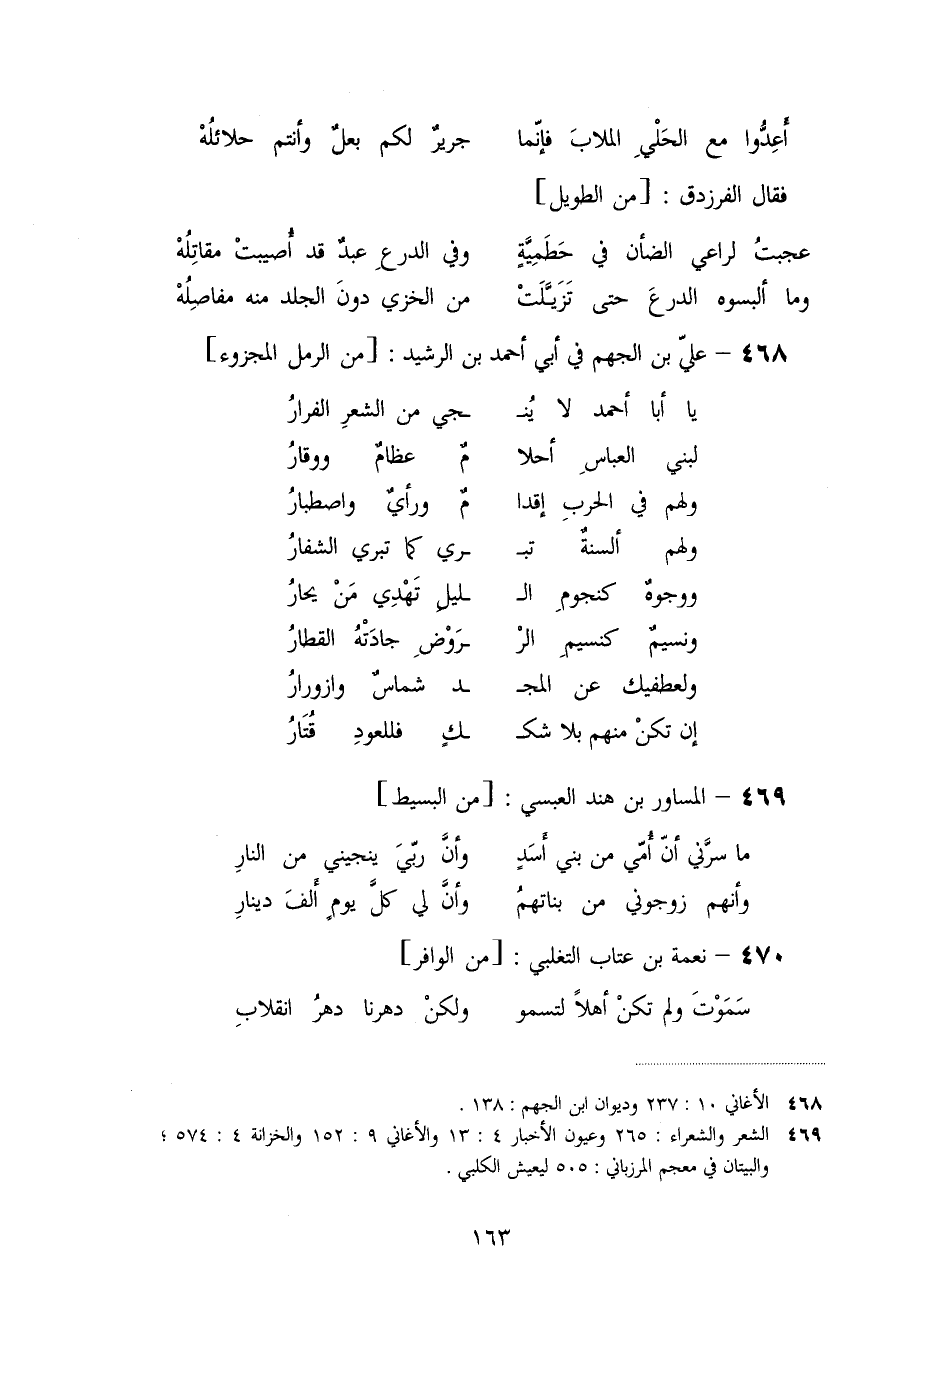 أَعِدُّوا مع الحَلْيِ الملابَ فإنّما جريرٌ لكم بعلٌ وأنتم حلائلُهْ
فقال الفرزدق : [من الطويل]
عجبتُ لراعي الضأن في حَطَمِيَّةٍ وفي الدرعِ عبدٌ قد أُصيبتْ مقاتِلُهْ
وما ألبسوه الدرعَ حتى تَزَيَّلَتْ من الخزي دونَ الجلد منه مفاصِلُهْ
٤٦٨ – عليّ بن الجهم في أبي أحمد بن الرشيد : [من الرمل المجزوء]
يا أبا أحمد لا يُنـ ـجي من الشعرِ الفرارُ
لبني العباسِ أحلا مٌ عظامٌ ووقارُ
ولهم في الحربِ إقدا مٌ ورأيٌ واصطبارُ
ولهم ألسنةٌ تبـ ـري كما تبري الشفارُ
ووجوهٌ كنجومِ الـ ـليلِ تَهْدِي مَنْ يحارُ
ونسيمٌ كنسيمِ الرْ رَوْضِ جادَتْهُ القطارُ
ولعطفيك عن المجـ ـد شماسٌ وازورارُ
إن تكنْ منهم بلا شكـ ـكٍ فللعودِ قُتَارُ
٤٦٩ – المساور بن هند العبسي : [من البسيط]
ما سرَّني أنّ أُمّي من بني أَسَدٍ وأنَّ ربّيَ ينجيني من النارِ
وأنهم زوجوني من بناتهمُ وأنَّ لي كلَّ يومٍ ألفَ دينارِ
٤٧٠ – نعمة بن عتاب التغلبي : [من الوافر]
سَمَوْتَ ولم تكنْ أهلاً لتسمو ولكنْ دهرنا دهرُ انقلابِ
٤٦٨ الأغاني ١٠ : ٢٣٧ وديوان ابن الجهم : ١٣٨ .
٤٦٩ الشعر والشعراء : ٢٦٥ وعيون الأخبار ٤ : ١٣ والأغاني ٩ : ١٥٢ والخزانة ٤ : ٥٧٤ ؛
والبيتان في معجم المرزباني : ٥٠٥ ليعيش الكلبي .
١٦٣